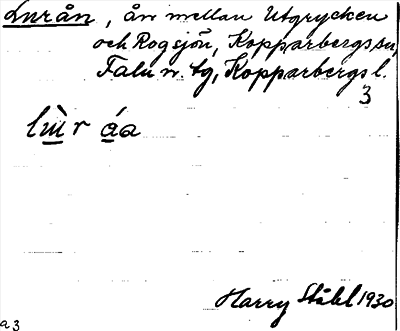 Lurån, ån mellan Utgrycken
och Rogsjön, Kopparbergs sn,
Falu n. tg, Kopparbergs l.
3
lùr áa
Harry Ståhl 1930
a3